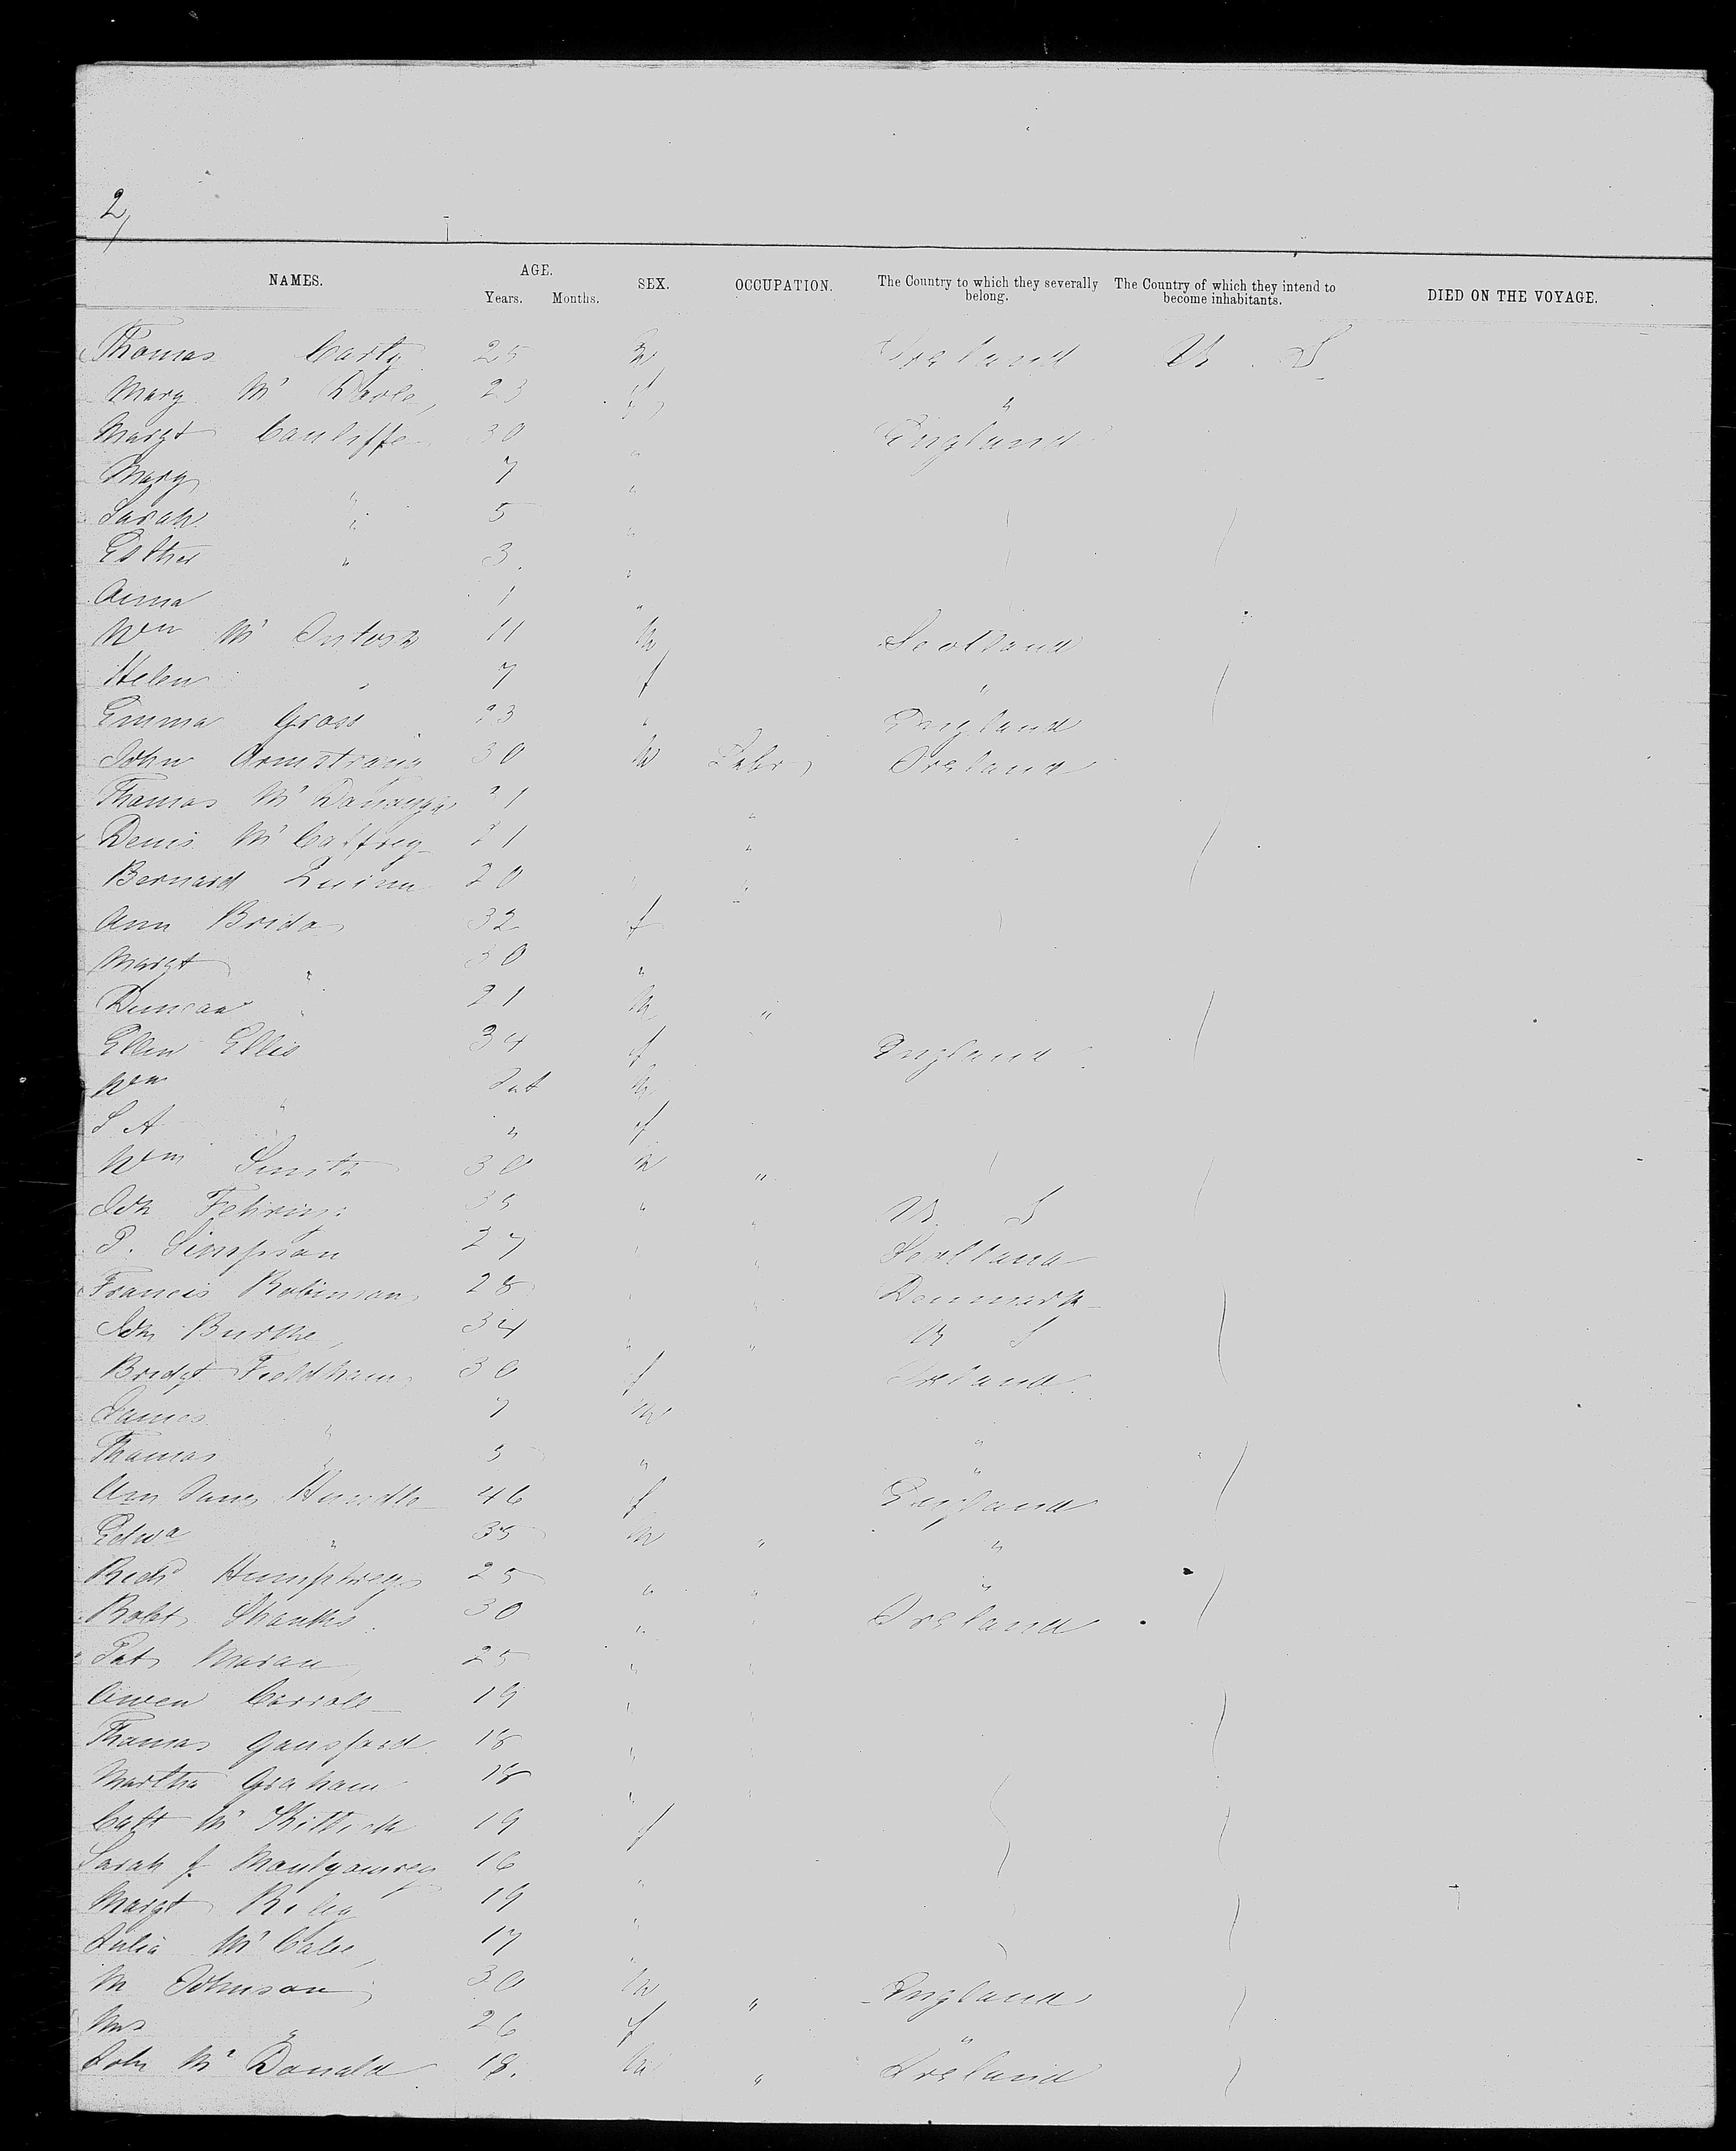 2
NAMES. AGE. Years. Months. SEX. OCCUPATION. The Country to which they severally belong. The Country of which they intend to become inhabitants. DIED ON THE VOYAGE.
Thomas Carty 25 m Ireland U. S
Mary Mc 23 f "
Margt Cauliffe 30 " England
Mary " 7 "
Sarah " 5 "
Esther " 3 "
Anna 1 "
Wm Mc Intosh 11 m Scotland
Helen " 7 f "
Emma Gross 23 " England
John Armstrong 30 m Labr Ireland
Thomas Mc 21 "
Denis Mc Caffrey 21 "
Bernard Quinn 20 " "
Ann Brida 32 f
Margt " 30 "
Duncan " 21 m "
Ellen Ellis 34 f England
Wm " Inft m
S A " " f
Wm Smith 30 m "
Jdn 35 " " U S
P. Simpson 27 " " Scotland
Francis Robinson 28 " " Denmark
Jdn Burke 34 " " U S
Bridgt Fieldham 30 f Ireland
James " 7 m "
Thomas " 5 " "
Ann Jane 46 f England
Edwd " 35 m " "
Richd Humphreys 25 " " "
Robt Shanks 30 " " Ireland
Pat Moran 25 " "
Owen Carroll 19 " "
Thomas Gansford 18 " "
Martha Graham 18 " "
Cath Mc 19 f
Sarah J Montgomrey 16 "
Margt Riley 19 "
Julia Mc Cabe 17 "
M Johnson 30 m " England
Mrs " 26 f "
John Mc Donald 18. m " Ireland